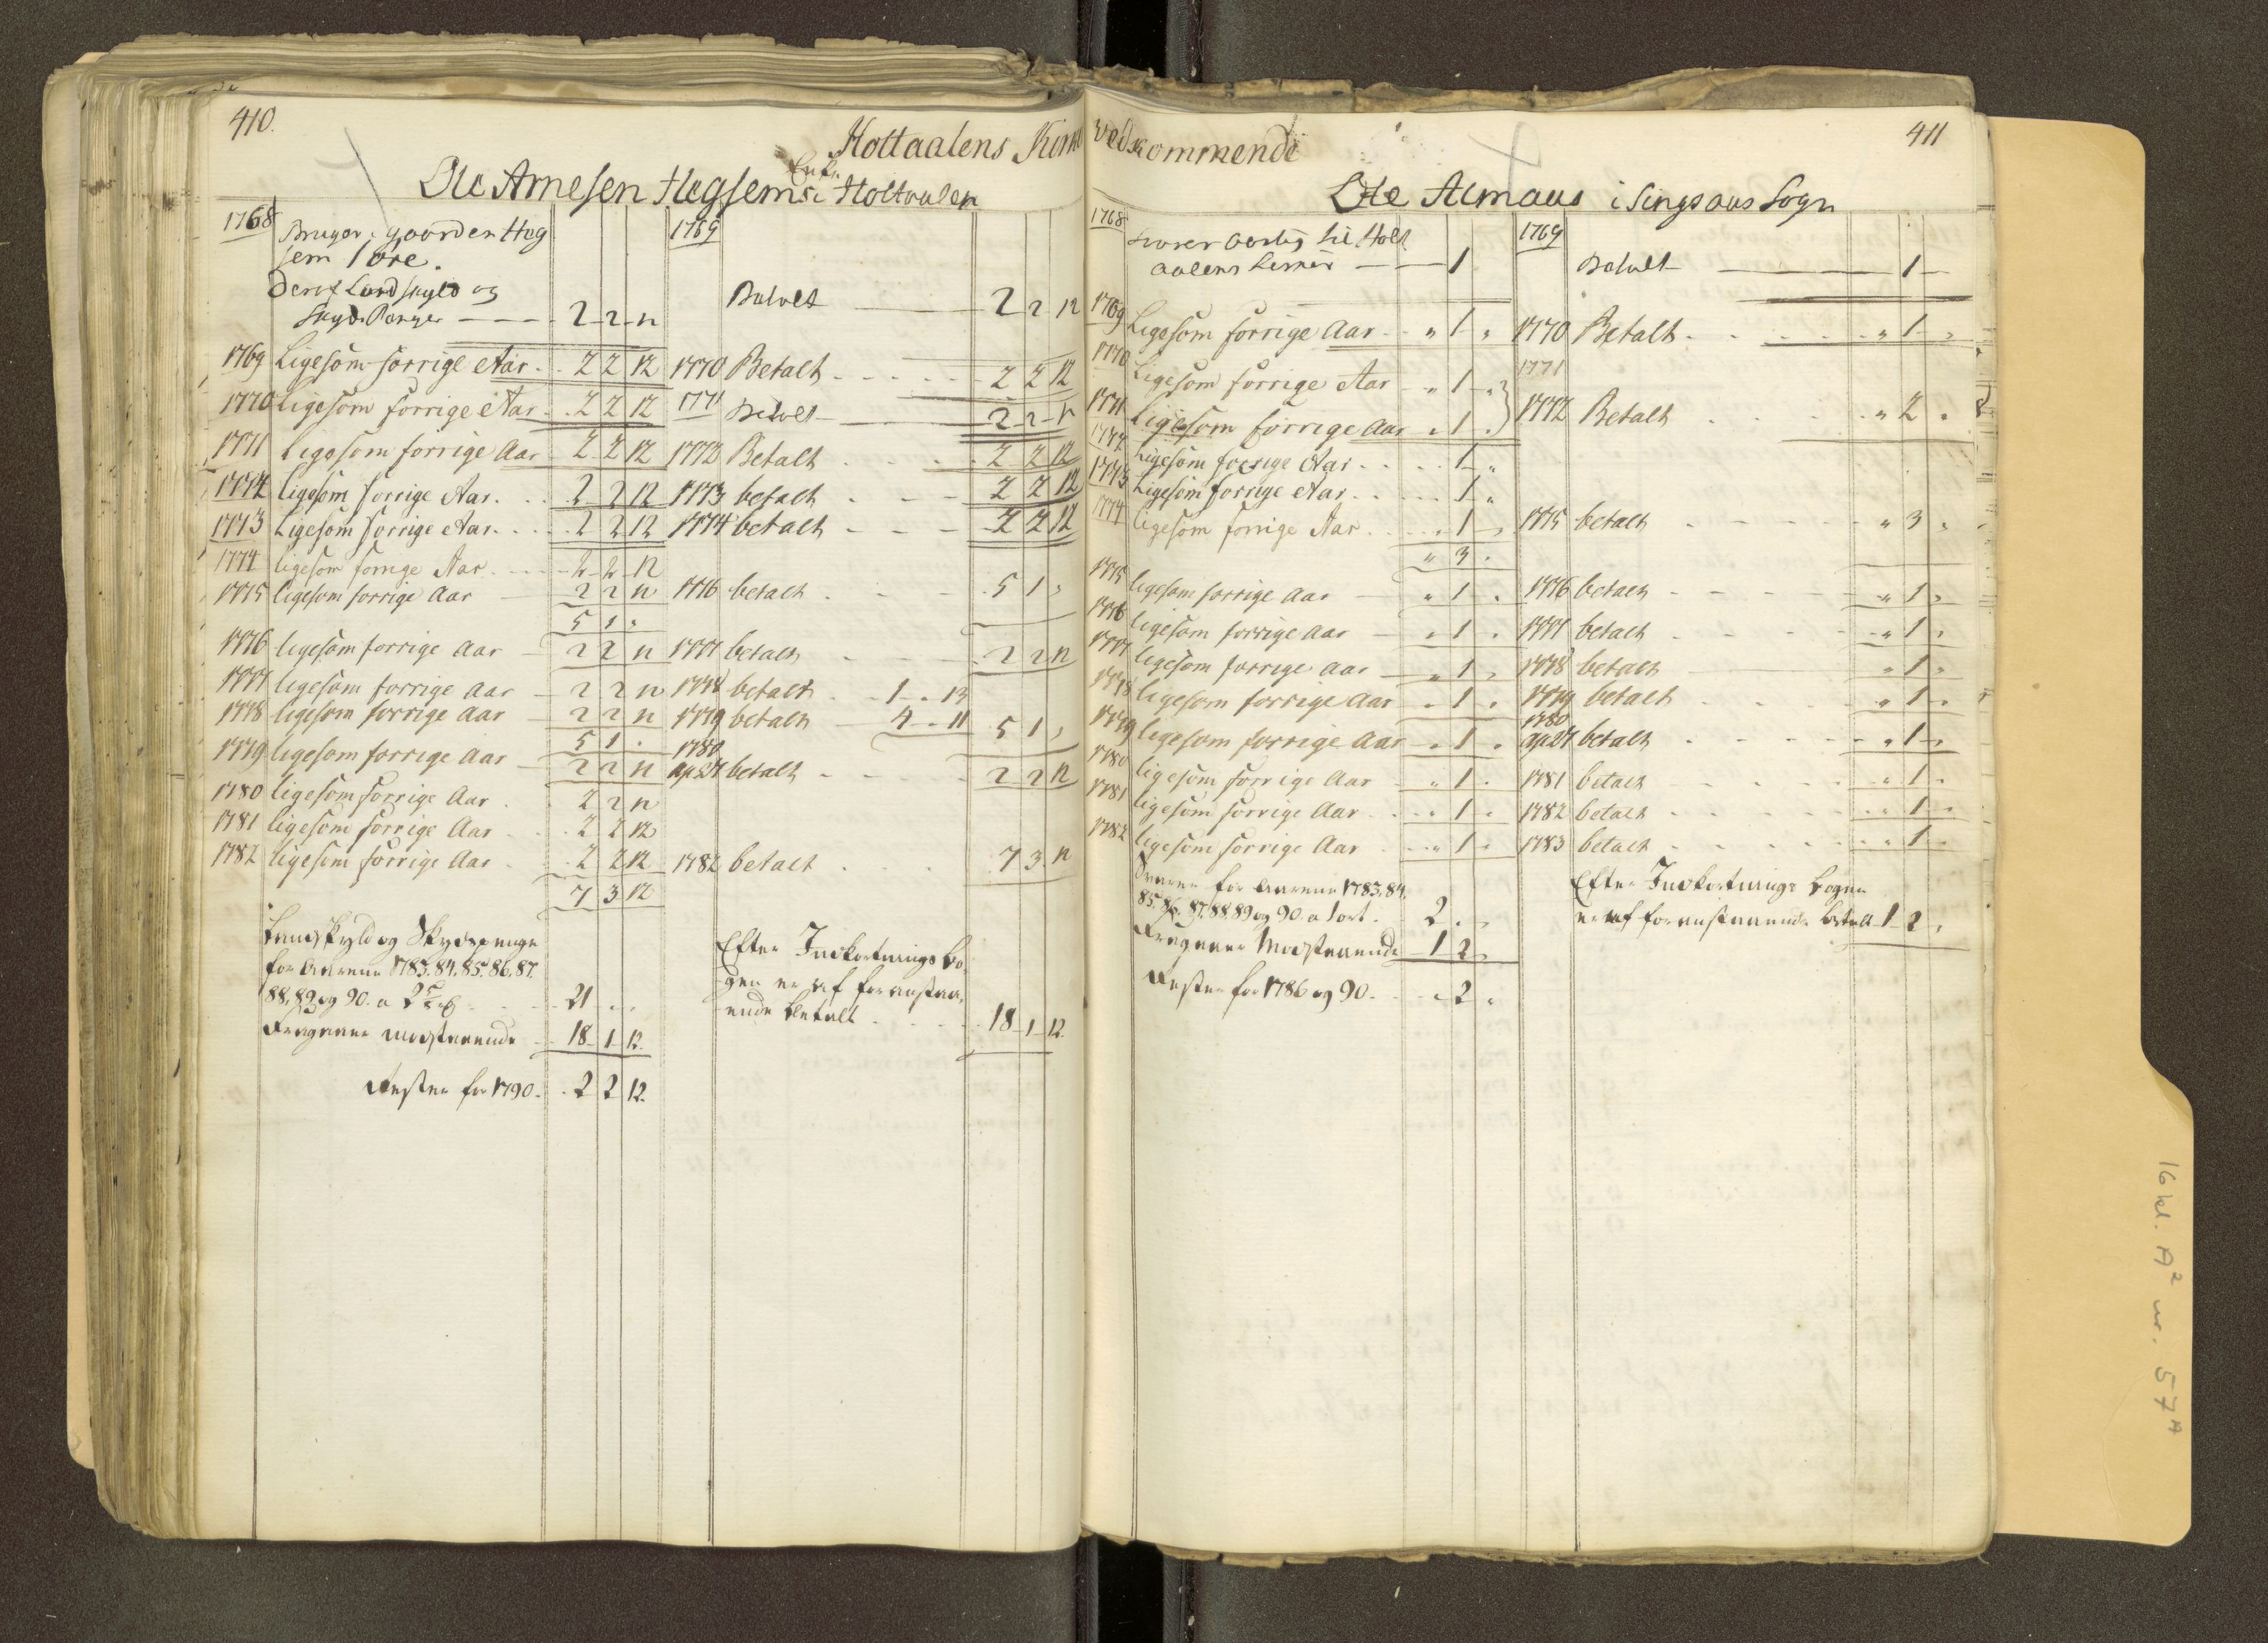 410.
Hottaalens Kirke
Enke
Ole Arnesen Hegsem i Holtaalen
1768 Bruger gaarden Heg
sem 1 öre.
Deraf Landskyld og
Skyds Penger — 2 2 12
1769 Betalt — 2 2 12
1769 Ligesom forrige Aar 2 2 12 1770 Betalt 2 2 12
1770 Ligesom forrige Aar 2 2 12 1771 Betalt 2 2 12
1771 Ligesom forrige Aar 2 2 12 1772 Betalt 2 2 12
1772 ligesom forrige Aar 2 2 12 1773 betalt 2 2 12
1773 Ligesom forrige Aar 2 2 12 1774 betalt 2 2 12
1774 ligesom forrige Aar 2 2 12
1775 ligesom forrige Aar 2 2 12 1776 betalt 5 1 "
5 1 "
1776 ligesom forrige Aar 2 2 12 1777 betalt 2 2 12
1777 ligesom forrige Aar 2 2 12 1778 betalt 1 " 13
1778 ligesom forrige Aar 2 2 12 1779 betalt 4 " 11 5 1 "
5 1 "
1779 ligesom forrige Aar 2 2 12 1780 ap 27 betalt 2 2 12
1780 ligesom forrige Aar 2 2 12
1781 ligesom forrige Aar 2 2 12
1782 ligesom forrige Aar 2 2 12 1782 betalt 7 3 12
7 3 12
Landskyld og Skydspenge
for Aarene 1783. 84. 85. 86. 87.
88, 89 og 90. a 21 " "
Fragaaer modstaaende 18 1 12.
Rester for 1790. 2 2 12.
Efter Indkortnings bo-
gen er af foranstaa-
ende betalt 18 1 12.
411
Vedkommende
Ole Almaas i Singsaas Sogn
1768 Svarer Aarlig til Holt
aalens Kirke — 1
1769 Betalt — 1
1769 Ligesom forrige Aar " 1 " 1770 Betalt " 1 "
1770 Ligesom forrige Aar " 1 " 1771
1771 Ligesom forrige Aar " 1 " 1772 Betalt " 2 "
1772 Ligesom forrige Aar 1 "
1773 Ligesom forrige Aar 1 "
1774 ligesom forrige Aar " 1 " 1775 betalt " 3 "
" 3 "
1775 ligesom forrige Aar " 1 " 1776 betalt " 1 "
1776 ligesom forrige Aar " 1 " 1777 betalt " 1 "
1777 ligesom forrige Aar " 1 " 1778 betalt " 1 "
1778 ligesom forrige Aar " 1 " 1779 betalt " 1 "
1779 ligesom forrige Aar " 1 " 1780 ap 27 betalt " 1 "
1780 ligesom forrige Aar " 1 " 1781 betalt " 1 "
1781 ligesom forrige Aar " 1 " 1782 betalt " 1 "
1782 ligesom forrige Aar " 1 " 1783 betalt " 1 "
Svarer for Aarene 1783. 84.
85. 86. 87. 88. 89 og 90 a 1 ort. 2 " "
Fragaaer Modstaaende 1 2 "
Rester for 1786 og 90. " 2 "
Efter Indkortnings bogen
er af foranstaaende betalt 1 2 "
16 kl. A² nr. 57A